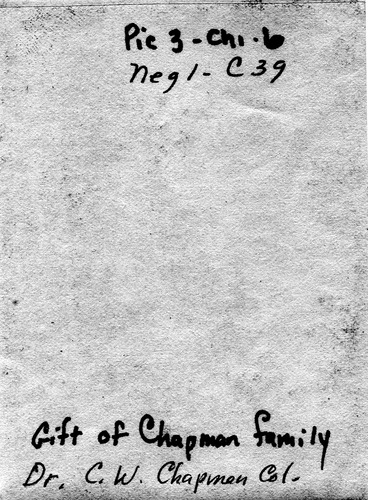 Pic 3-Chi-6
Neg1-C39
Gift of Chapman family
Dr. C.W. Chapman Col.